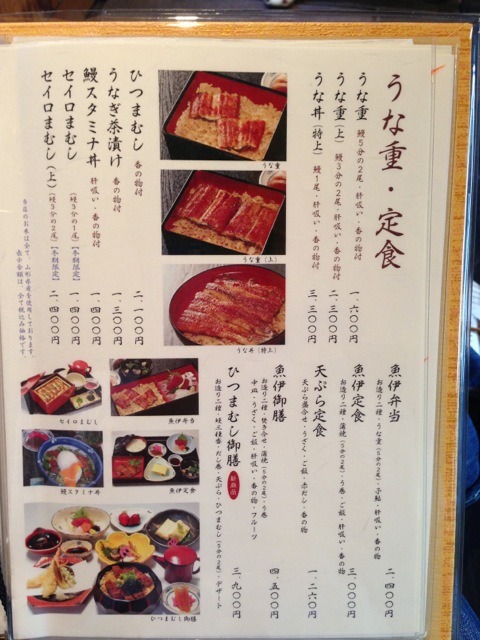 うな重・定食
うな重 鰻5分の2尾・肝吸い・香の物付 一、六〇〇円
うな重(上) 鰻3分の2尾・肝吸い・香の物付 二、三〇〇円
うな丼(特上) 鰻1尾・肝吸い・香の物付 三、三〇〇円
うな重
うな重(上)
うな丼(特上)
ひつまむし 香の物付 二、一〇〇円
うなぎ茶漬け 香の物付 一、三〇〇円
鰻スタミナ丼 肝吸い・香の物付 一、四〇〇円
セイロまむし (鰻3分の1尾)【冬期限定】 一、四〇〇円
セイロまむし(上) (鰻3分の2尾)【冬期限定】 二、四〇〇円
当店のお米は全て、山形県産を使用しております。
表示金額は、全て税込み価格です。
魚伊弁当 二、四〇〇円
お造り二種・うな重(5分の2尾)・子鮎・肝吸い・香の物
魚伊定食 三、〇〇〇円
お造り二種・蒲焼(5分の2尾)・う巻・ご飯・肝吸い・香の物
天ぷら定食 一、二六〇円
天ぷら盛合せ・うざく・ご飯・赤だし・香の物
魚伊御膳 四、五〇〇円
お造り二種・焚き合せ・蒲焼(5分の2尾)・う巻
中皿・うざく・ご飯・肝吸い・香の物・フルーツ
ひつまむし御膳 三、九〇〇円
お造り二種・鰻三種番・だし巻・天ぷら・ひつまむし(5分の2尾)・デザート
セイロまむし
魚伊弁当
鰻スタミナ丼
魚伊定食
ひつまむし御膳